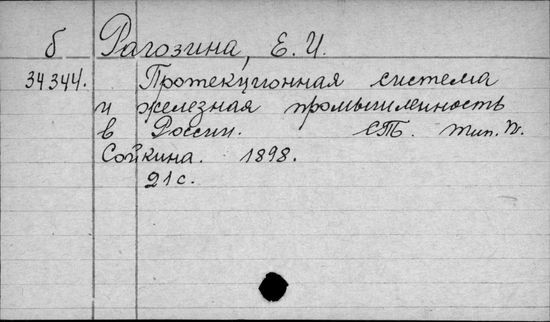 б Рагозина, Е. И.
34344. Протекционная система
и железная промышленность
в России. СТ. тип. П.
Сойкина. 1898.
21 с.